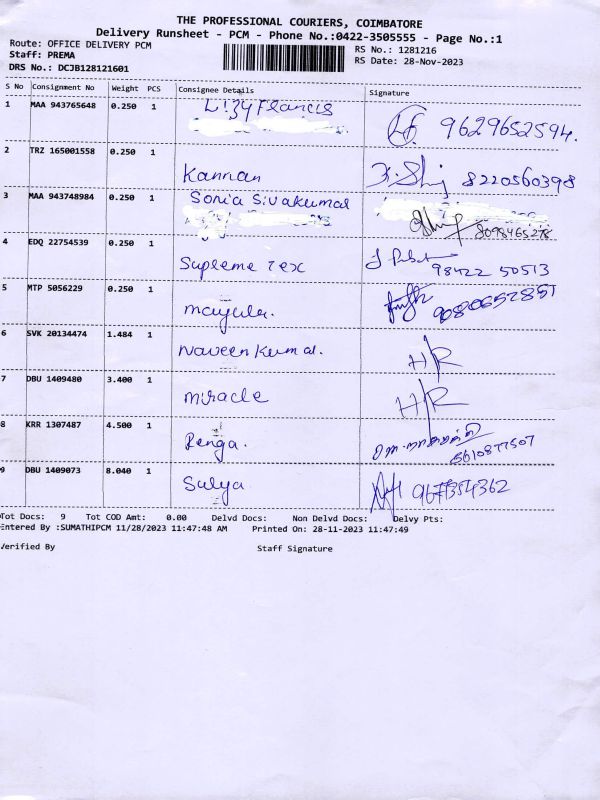 THE PROFESSIONAL COURIERS, COIMBATORE
Delivery Runsheet - PCM - Phone No.:0422-3505555 - Page No.:1
Route: OFFICE DELIVERY PCM
RS No.: 1281216
Staff: PREMA
RS Date: 28-Nov-2023
DRS No.: DCJB128121601
S No Consignment No Weight PCS Consignee Details Signature
1 MAA 943765648 0.250 1 Lizy Francis 9629652594.
2 TRZ 165001558 0.250 1 Kannan 8220560398
3 MAA 943748984 0.250 1 Sonia Sivakumar 8098465278
4 EDQ 22754539 0.250 1 Supreme Tex 98422 50513
5 MTP 5056229 0.250 1 mayula. 9080652851
6 SVK 20134474 1.484 1 Naveen Kumar. HR
7 DBU 1409480 3.400 1 miracle HR
8 KRR 1307487 4.500 1 Renga.
9 DBU 1409073 8.040 1 Surya
Tot Docs: 9 Tot COD Amt: 0.00 Delvd Docs: Non Delvd Docs: Delvy Pts:
Entered By :SUMATHIPCM 11/28/2023 11:47:48 AM Printed On: 28-11-2023 11:47:49
Verified By Staff Signature